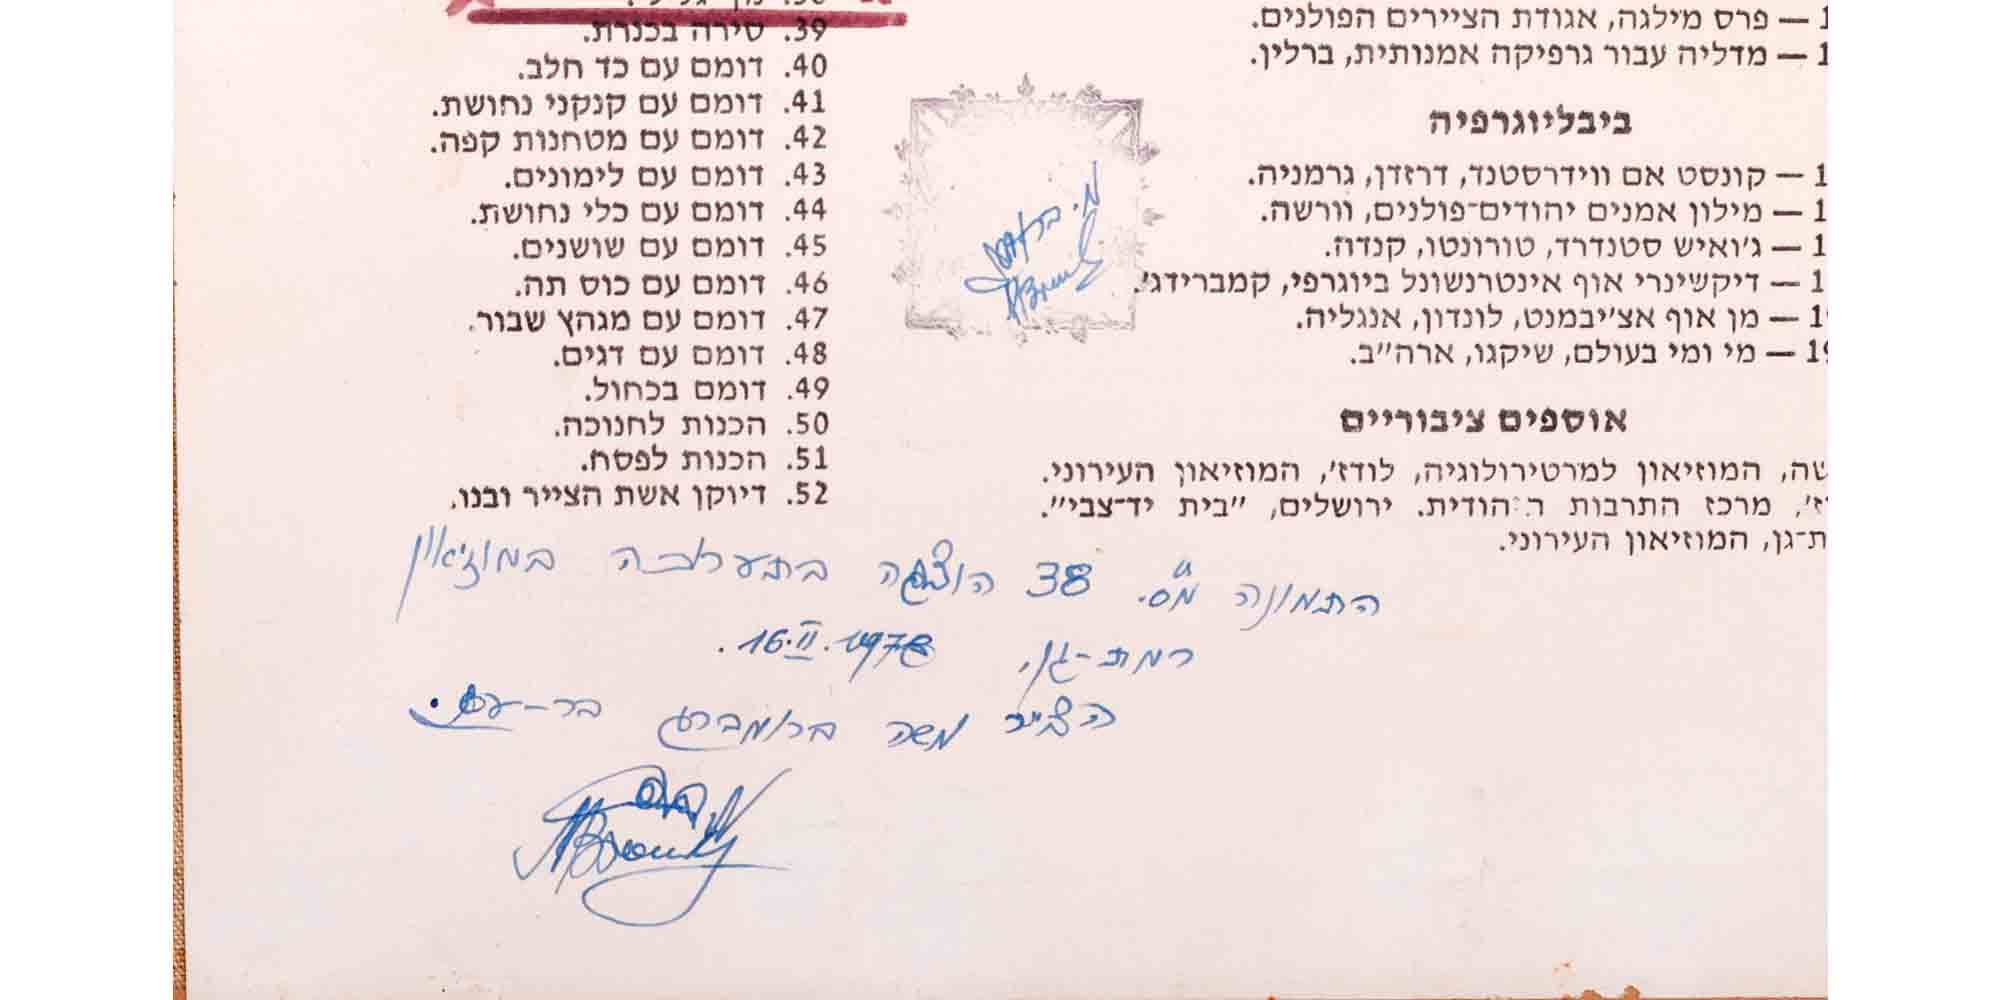 1 — פרס מילגה, אגודת הציירים הפולנים.
1 — מדליה עבור גרפיקה אמנותית, ברלין.
ביבליוגרפיה
1 — קונסט אם ווידרסטנד, דרזדן, גרמניה.
1 — מילון אמנים יהודים־פולנים, וורשה.
1 — ג׳ואיש סטנדרד, טורונטו, קנדה.
1 — דיקשינרי אוף אינטרנשונל ביוגרפי, קמברידג׳.
1 — מן אוף אצ׳יבמנט, לונדון, אנגליה.
19 — מי ומי בעולם, שיקגו, ארה״ב.
אוספים ציבוריים
שה, המוזיאון למרטירולוגיה, לודז׳, המוזיאון העירוני.
ז׳, מרכז התרבות היהודית. ירושלים, ״בית יד־צבי״.
ת־גן, המוזיאון העירוני.
39. סירה בכנרת.
40. דומם עם כד חלב.
41. דומם עם קנקני נחושת.
42. דומם עם מטחנות קפה.
43. דומם עם לימונים.
44. דומם עם כלי נחושת.
45. דומם עם שושנים.
46. דומם עם כוס תה.
47. דומם עם מגהץ שבור.
48. דומם עם דגים.
49. דומם בכחול.
50. הכנות לחנוכה.
51. הכנות לפסח.
52. דיוקן אשת הצייר ובנו.
התמונה מ״ס. 38 הוצגה בתערוכה במוזיאון
רמת-גן, 16.II.1978.
הצייר משה ברומברג בר-עם.